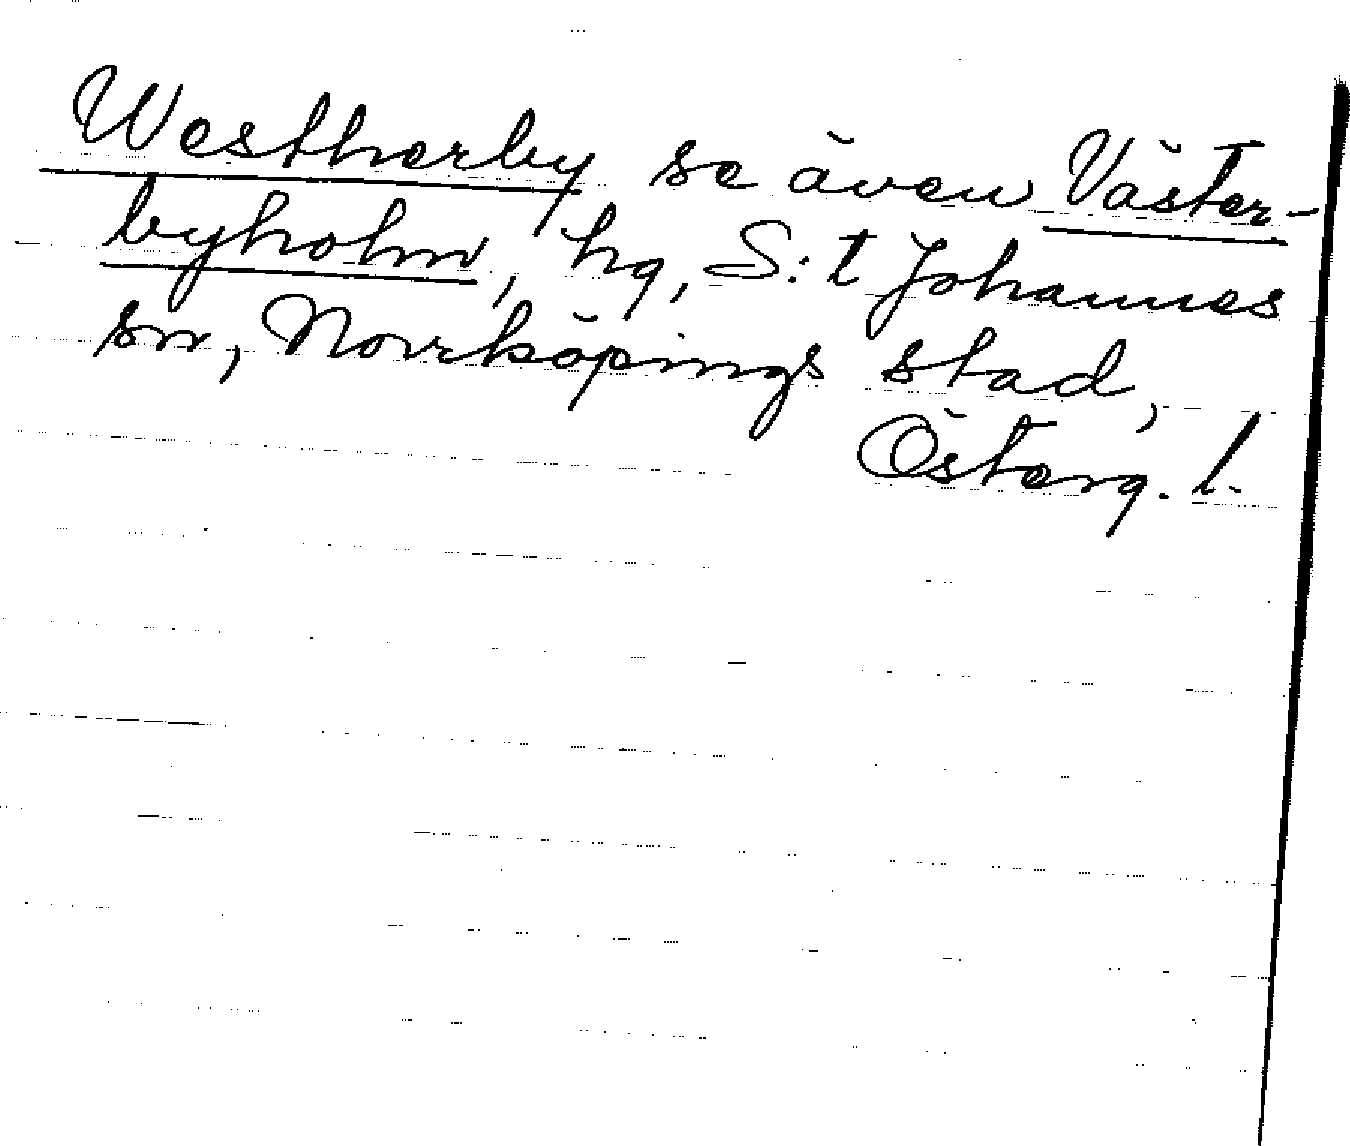 Westherby se även Väster-
byholm, hg, S:t Johannes
sn, Norrköpings stad,
Österg. l.